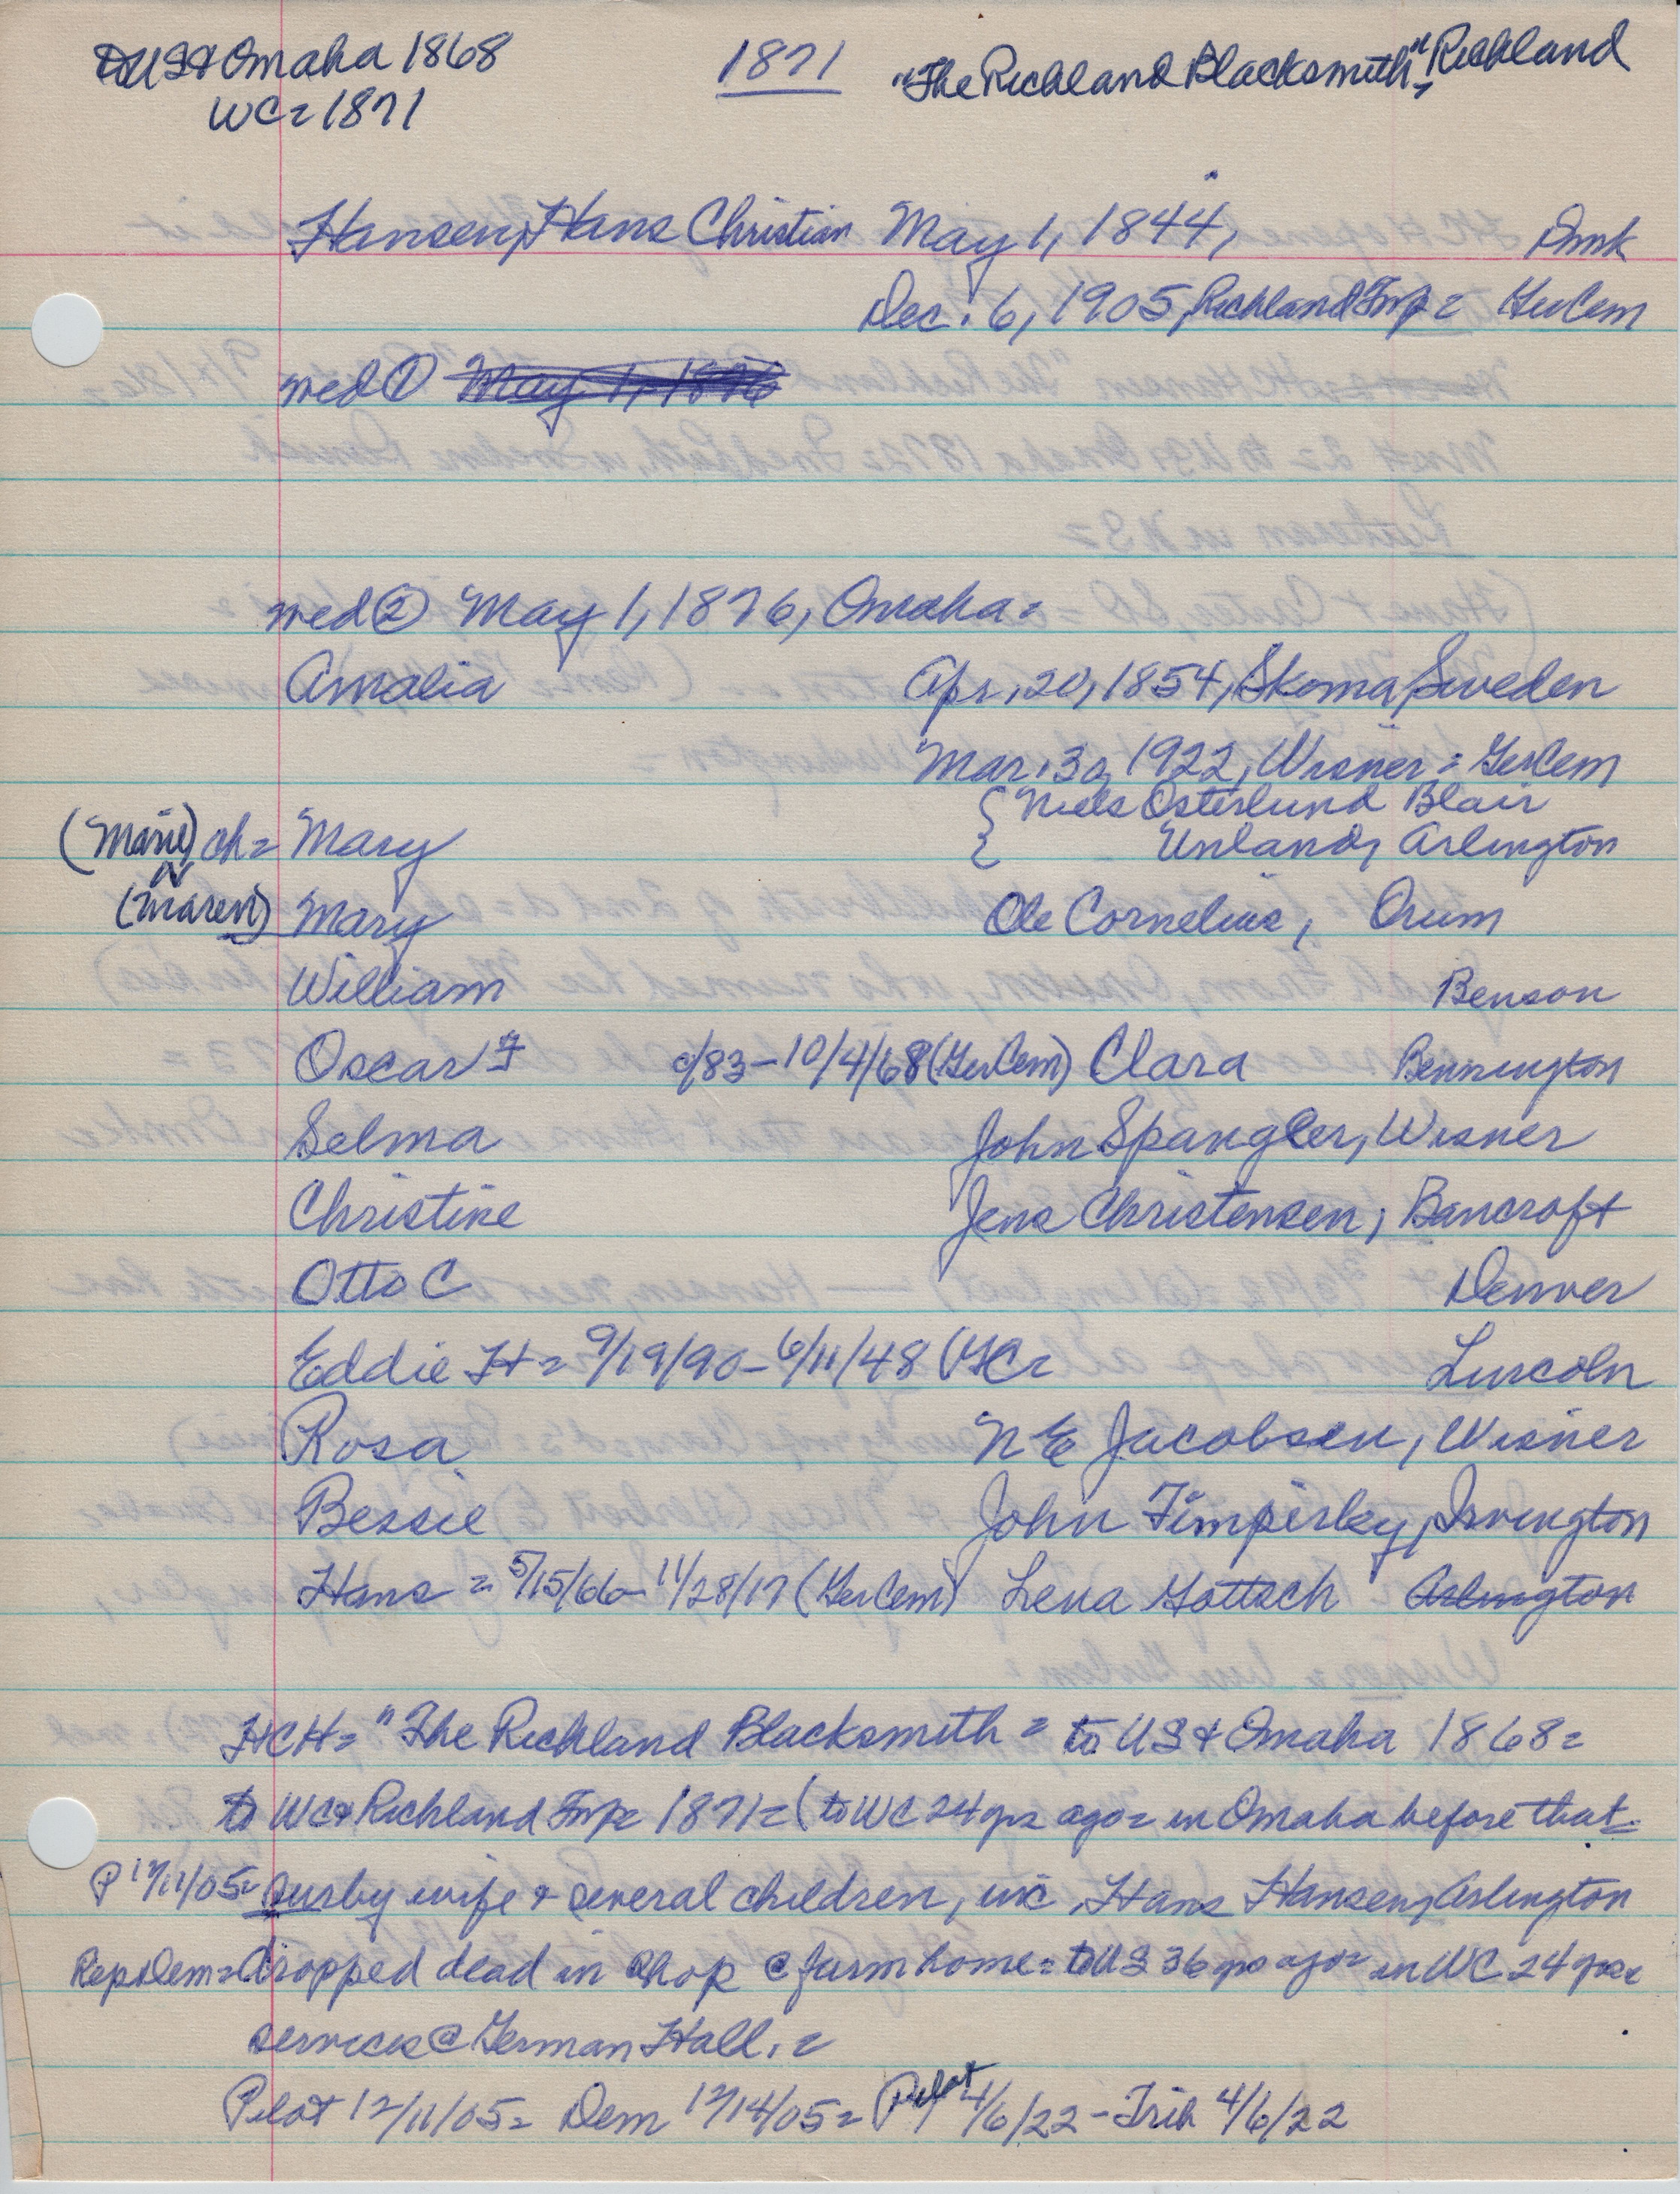 to US & Omaha 1868 1871 "The Richland Blacksmith", Richland
WC = 1871
Hansen, Hans Christian May 1, 1844, Dmk
Dec. 6, 1905, Richland Twp = GerCem
wed ① May 1, 1876
wed ② May 1, 1876, Omaha =
Amalia Apr. 20, 1854, Skoma, Sweden
Mar. 30, 1922, Wisner = GerCem
{ Niels Osterlund Blair
(Marie) ch = Mary { Unland, Arlington
(Maren) Mary Ole Cornelius, Orum
William Benson
Oscar F c/83 - 10/4/68 (GerCem) Clara Bennington
Selma John Spangler, Wisner
Christine Jens Christensen, Bancroft
Otto C Denver
Eddie H = 9/19/90 - 6/11/48 (GC = Lincoln
Rosa N E Jacobsen, Wisner
Bessie John Timperley, Irvington
Hans = 5/15/66 - 11/28/17 (GerCem) Lena Gottsch Arlington
HCH = "The Richland Blacksmith = to US & Omaha 1868 =
to WC & Richland Twp = 1871 = (to WC 24 yrs ago = in Omaha before that =
P 12/11/05 = surby wife & several children, inc Hans Hansen, Arlington
RepDem = dropped dead in shop @ farm home = to US 36 yrs ago = in WC 24 yrs =
services @ German Hall. =
Pilot 12/11/05 = Dem 12/14/05 = Pilot 4/6/22 - Trib 4/6/22